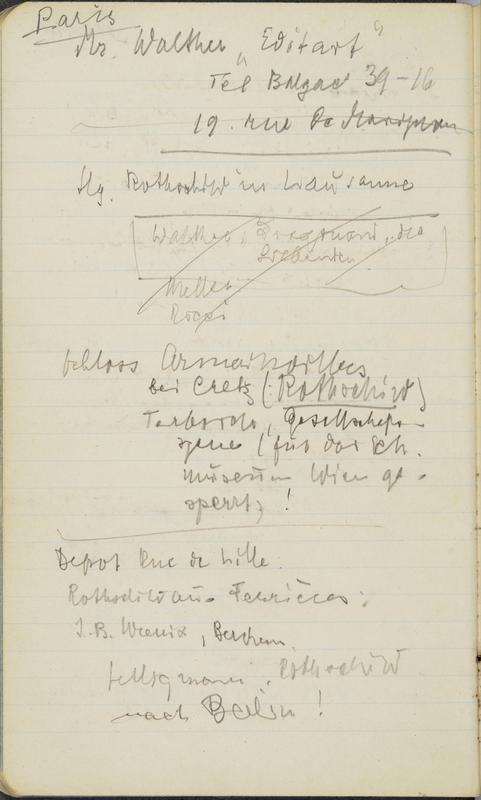 Paris
Mr. Walther „Editart“
Tel Balzac 39-16
19. rue de
Slg. Rothschild in Lausanne
Walther:
Liebenden
Schloss Armainvilliers
bei Cretz (: Rothschild)
Terborch, Gesellschafts-
szene (für das Kh.
Museum Wien ge-
sperrt,!
Depot Rue de Lille:
Rothschild aus Ferrières:
J. B. Weenix, Berchem.
Seligmann, Rothschild
nach Berlin!